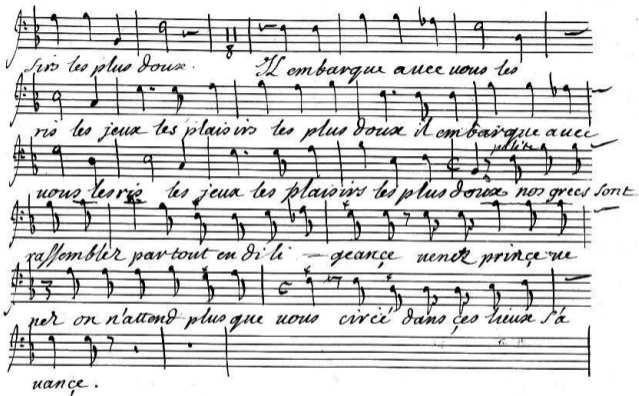 sirs les plus doux. Il embarque avec vous les
ris les jeux les plaisirs les plus doux il embarque avec
polite
vous les ris les jeux les plaisirs les plus doux nos grecs sont
rassemblez partout en dili - geance venez prince ve
nez on n'attend plus que vous circé dans ces lieux s'a
vance.